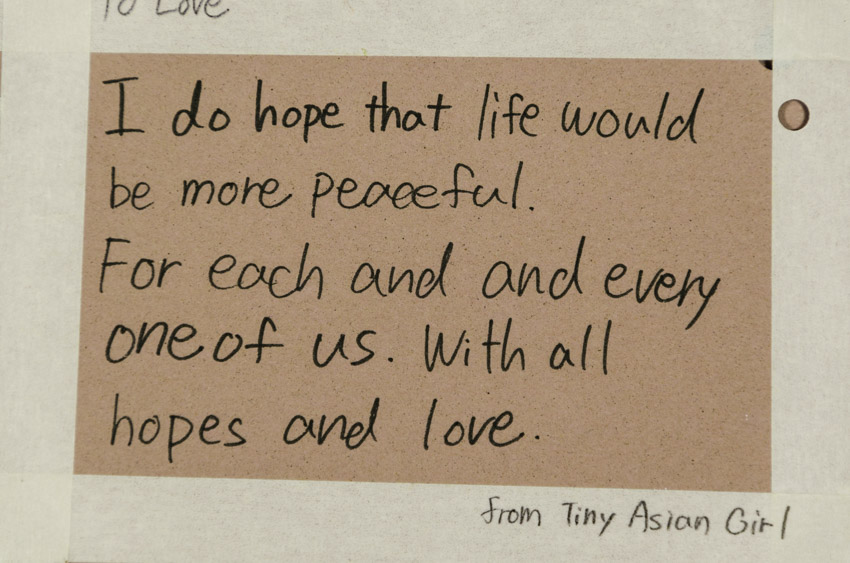 To Love
I do hope that life would
be more peaceful.
For each and and every
one of us. With all
hopes and love.
from Tiny Asian Girl